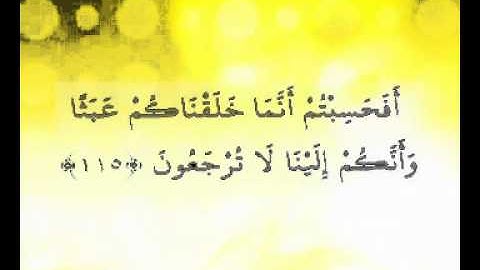 أَفَحَسِبْتُمْ أَنَّمَا خَلَقْنَاكُمْ عَبَثًا
وَأَنَّكُمْ إِلَيْنَا لَا تُرْجَعُونَ ﴿١١٥﴾